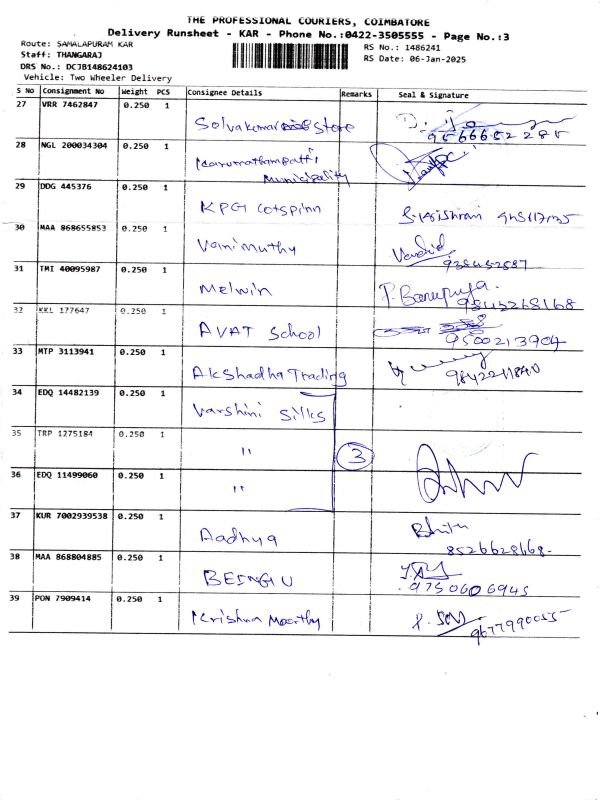 THE PROFESSIONAL COURIERS, COIMBATORE
Delivery Runsheet - KAR - Phone No.:0422-3505555 - Page No.:3
Route: SAMALAPURAM KAR
RS No.: 1486241
Staff: THANGARAJ
RS Date: 06-Jan-2025
DRS No.: DCJB148624103
Vehicle: Two Wheeler Delivery
S No Consignment No Weight PCS Consignee Details Remarks Seal & Signature
27 VRR 7462847 0.250 1
Selvakumar Store
9566652285
28 NGL 200034304 0.250 1
Karumathampatti
Municipality
29 DDG 445376 0.250 1
KPG Cotspinn
30 MAA 868655853 0.250 1
Vanimuthy
31 TMI 40095987 0.250 1
Melwin
9845268168
32 KKL 177647 0.250 1
AVAT School
9500213904
33 MTP 3113941 0.250 1
Akshadha Trading
34 EDQ 14482139 0.250 1
Varshini Silks
35 TRP 1275184 0.250 1
" 3
36 EDQ 11499060 0.250 1
"
37 KUR 7002939538 0.250 1
Aadhya
8526628668-
38 MAA 868804885 0.250 1
9750606945
39 PON 7909414 0.250 1
Krishna Moorthy
9677990055